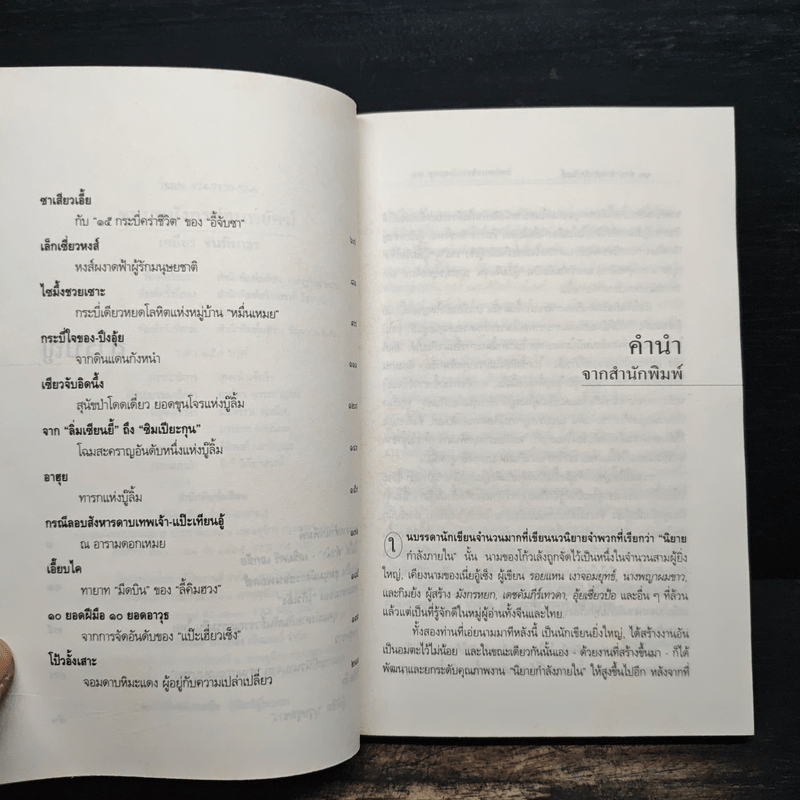 ซาเสียวเอี้ย
กับ "๑๕ กระบี่คร่าชีวิต" ของ "อี้จับซา"
เล็กเซี่ยวหงส์
หงส์ผงาดฟ้าผู้รักมนุษยชาติ
ไซมึ้งชวยเซาะ
กระบี่เดียวหยดโลหิตแห่งหมู่บ้าน "หมื่นเหมย"
กระบี่ใจของ-ปึงอุ้ย
จากดินแดนกังหนำ
เซียวจับอิดนึ้ง
สุนัขป่าโดดเดี่ยว ยอดขุนโจรแห่งบู๊ลิ้ม
จาก "ลิ่มเซียนยี้" ถึง "ซิมเปียะกุน"
โฉมสะคราญอันดับหนึ่งแห่งบู๊ลิ้ม
อาฮุย
ทารกแห่งบู๊ลิ้ม
กรณีลอบสังหารดาบเทพเจ้า-แป๊ะเทียนอู้
ณ อารามดอกเหมย
เอี๊ยบไค
ทายาท "มีดบิน" ของ "ลี้คิมฮวง"
๑๐ ยอดฝีมือ ๑๐ ยอดอาวุธ
จากการจัดอันดับของ "แป๊ะเฮี่ยวเซ็ง"
โป้วอั้งเสาะ
จอมดาบหิมะแดง ผู้อยู่กับความเปล่าเปลี่ยว
คำนำ
จากสำนักพิมพ์
ในบรรดานักเขียนจำนวนมากที่เขียนนวนิยายจำพวกที่เรียกว่า "นิยาย
กำลังภายใน" นั้น นามของโก้วเล้งถูกจัดไว้เป็นหนึ่งในจำนวนสามผู้ยิ่ง
ใหญ่, เคียงนามของเนี่ยอู้เซ็ง ผู้เขียน รอยแหน เงาจอมยุทธ์, นางพญาผมขาว,
และกิมย้ง ผู้สร้าง มังกรหยก, เดชคัมภีร์เทวดา, อุ้ยเซี่ยวป้อ และอื่น ๆ ที่ล้วน
แล้วแต่เป็นที่รู้จักดีในหมู่ผู้อ่านทั้งจีนและไทย.
ทั้งสองท่านที่เอ่ยนามมาทีหลังนี้ เป็นนักเขียนยิ่งใหญ่, ได้สร้างงานอัน
เป็นอมตะไว้ไม่น้อย และในขณะเดียวกันนั้นเอง - ด้วยงานที่สร้างขึ้นมา - ก็ได้
พัฒนาและยกระดับคุณภาพงาน "นิยายกำลังภายใน" ให้สูงขึ้นไปอีก หลังจากที่